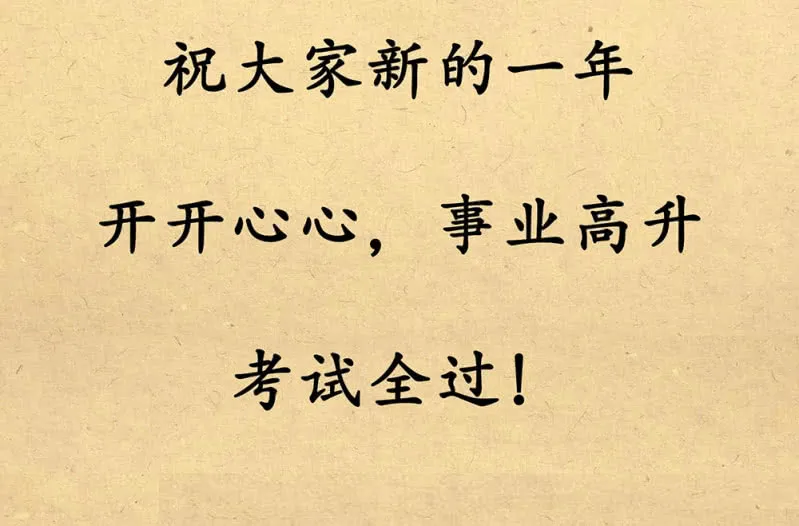 祝大家新的一年
开开心心，事业高升
考试全过！